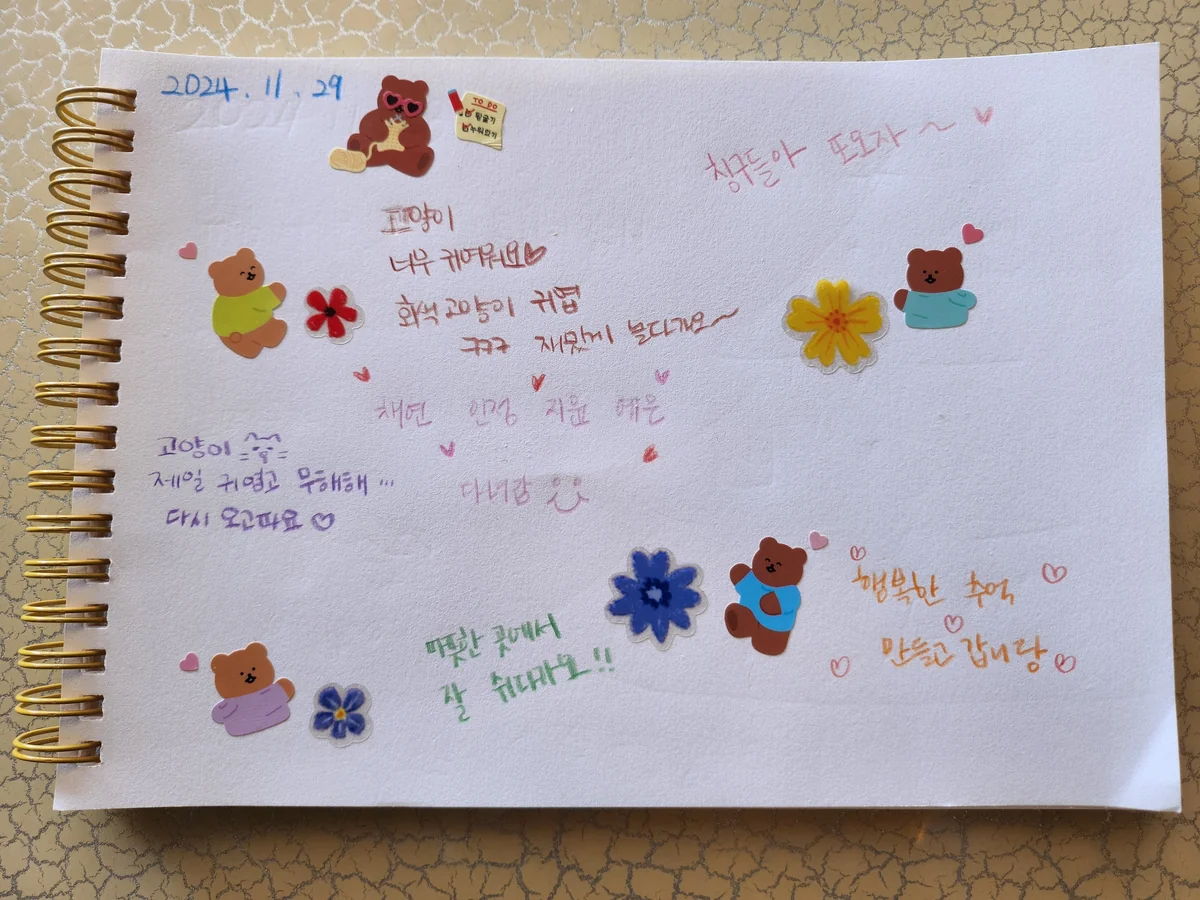 2024. 11. 29
TO DO
뒹굴기
누워있기
칭구들아 또오자~
고양이
너무 귀여워요
회색고양이 귀엽
ㅋㅋㅋ 재밌게 놀다가요~
채연 인정 지윤 예은
다녀감
고양이
제일 귀엽고 무해해...
다시 오고파요
따뜻한 곳에서
잘 쉬다가요!!
행복한 추억
만들고 갑니당